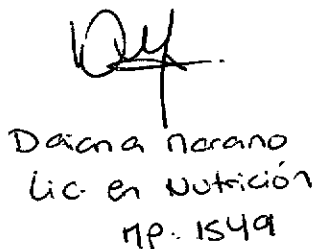 Daiana Morano
Lic. en Nutrición
MP. 1549